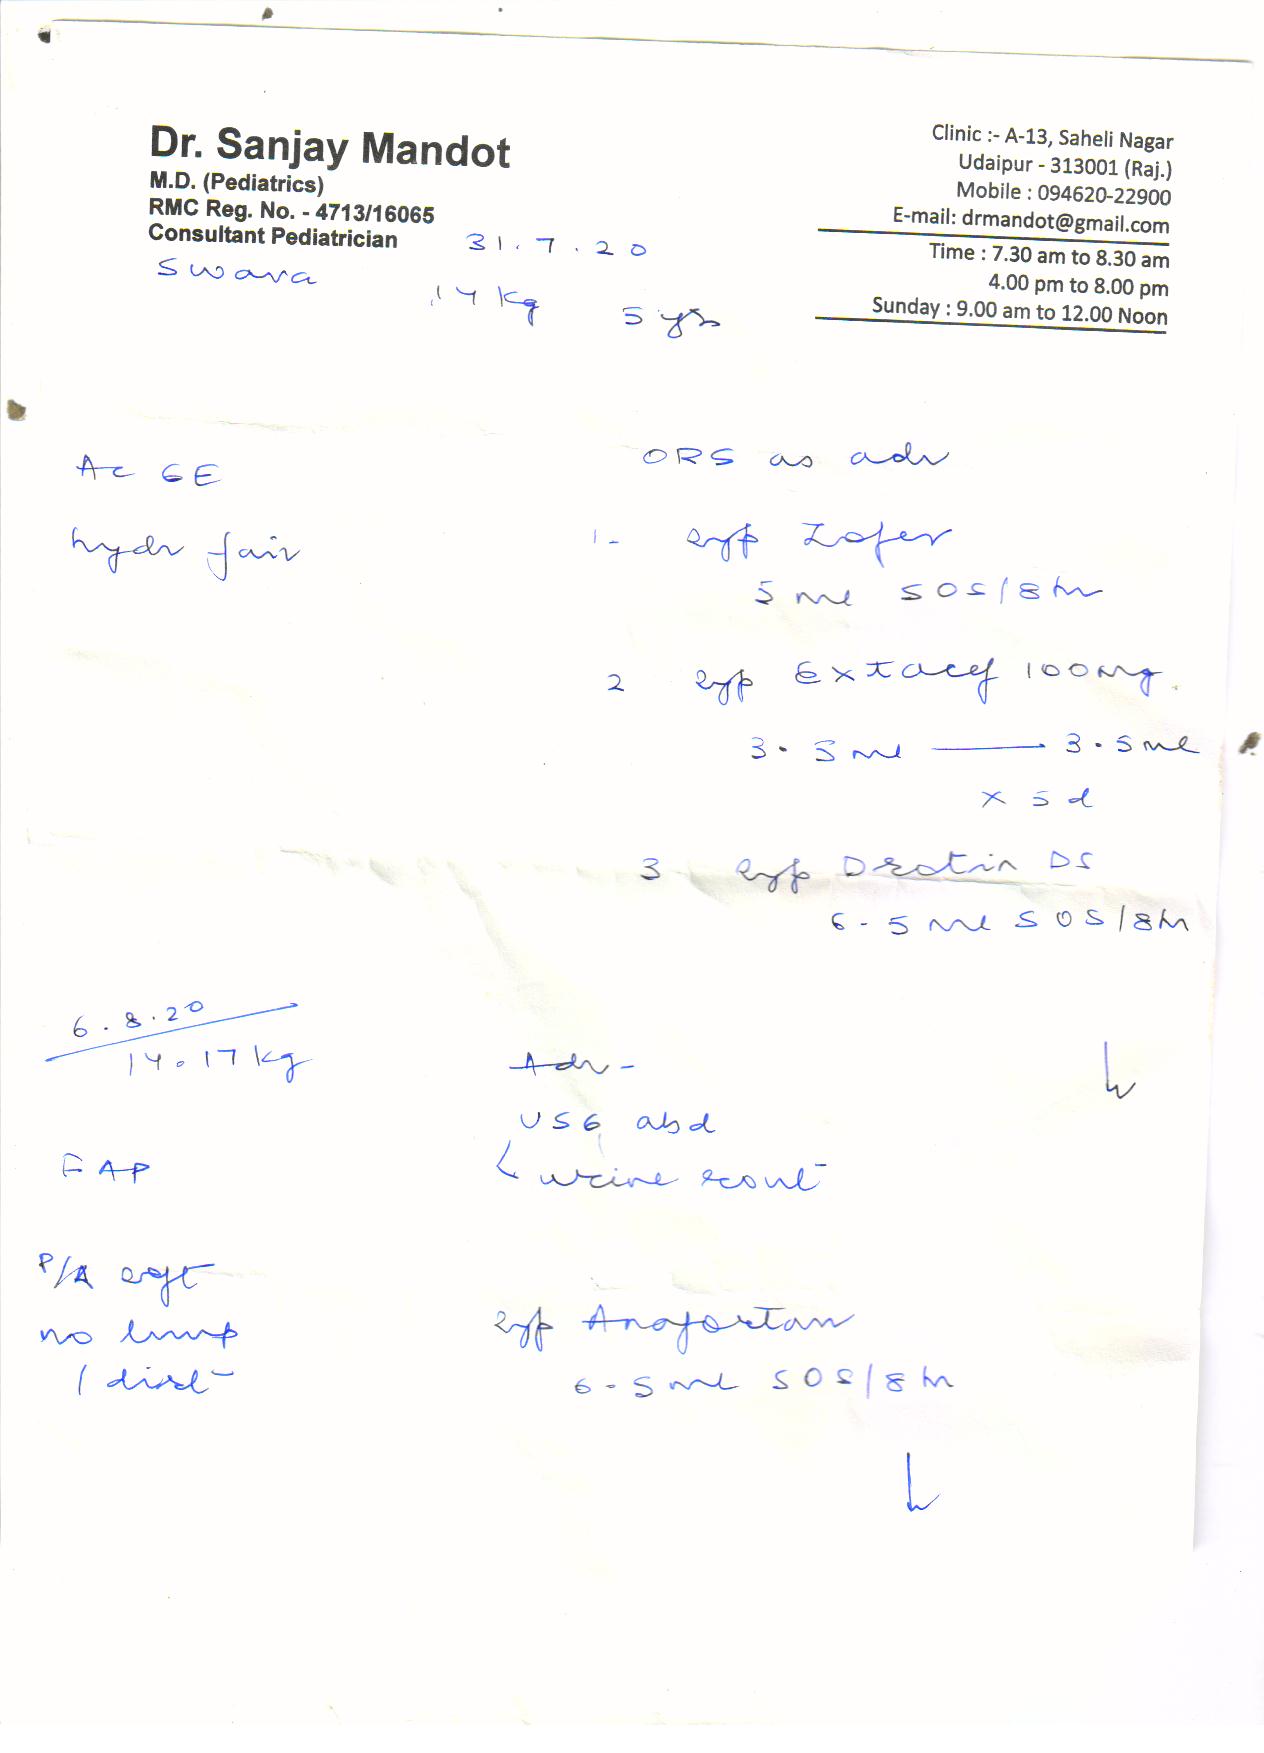 Dr. Sanjay Mandot
M.D. (Pediatrics)
RMC Reg. No. - 4713/16065
Consultant Pediatrician
Clinic :- A-13, Saheli Nagar
Udaipur - 313001 (Raj.)
Mobile : 094620-22900
E-mail: drmandot@gmail.com
Time : 7.30 am to 8.30 am
4.00 pm to 8.00 pm
Sunday : 9.00 am to 12.00 Noon
31.7.20
Swara
14 kg 5 yrs
Ac GE
hydr fair
ORS as adv
1- syp Zofer
5 ml SOS/8hr
2 syp Extacef 100mg
3.5ml — 3.5ml
x 5 d
3 syp Drotin DS
6-5 ml SOS/8hr
6.8.20
14.17kg
Adv-
USG abd
urine rout
FAP
P/A soft
no lump
/ dist
syp Anafortan
6-5 ml SOS/8hr